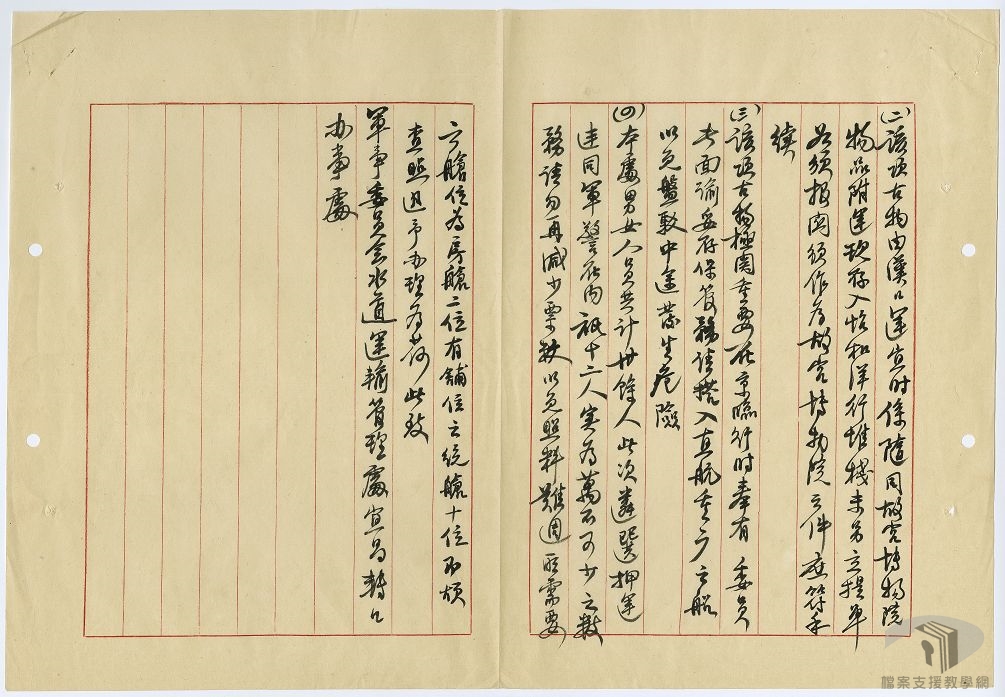 (二)該項古物由漢口運宜時係隨同故宮博物院
物品附運現存入怡和洋行堆棧未另立提單
如須報關須作為故宮博物院之件應符手
續
(三)該項古物極關重要在京臨行時奉有 委員
長面諭妥存保管務請搭入直航重慶之船
以免盤駁中途發生危險
(四)本處男女人員共計卅餘人此次遴選押運
連同軍警在內祇十二人實為萬不可少之數
務請勿再減少票數以免照料難週所需要
之艙位為房艙二位有鋪位之統艙十位即煩
查照迅予辦理為荷此致
軍事委員會水道運輸管理處宜昌轉口
办事處
檔案支援教學網